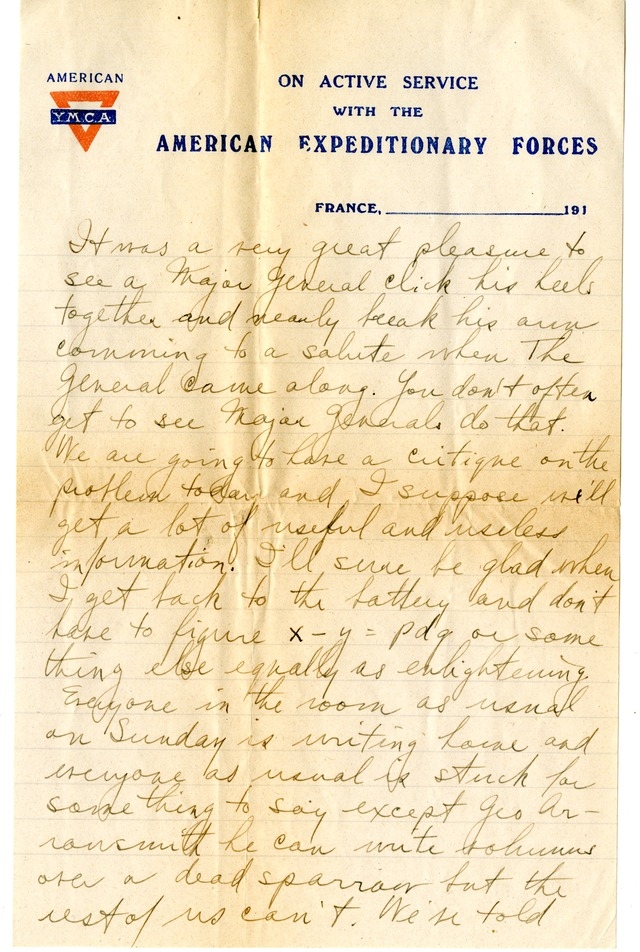 AMERICAN
Y.M.C.A.
ON ACTIVE SERVICE
WITH THE
AMERICAN EXPEDITIONARY FORCES
FRANCE, 191
It was a very great pleasure to
see a Major General click his heels
together and nearly break his arm
comming to a salute when The
General came along. You don't often
get to see Major Generals do that.
We are going to have a critique on the
problem today and I suppose we'll
get a lot of useful and useless
information. I'll sure be glad when
I get back to the battery and don't
have to figure x - y = pdq or some
thing else equally as enlightening.
Everyone in the room as usual
on Sunday is writing home and
everyone as usual is stuck for
something to say except Geo Ar-
rowsmith he can write volumns
over a dead sparrow but the
rest of us can't. We're told